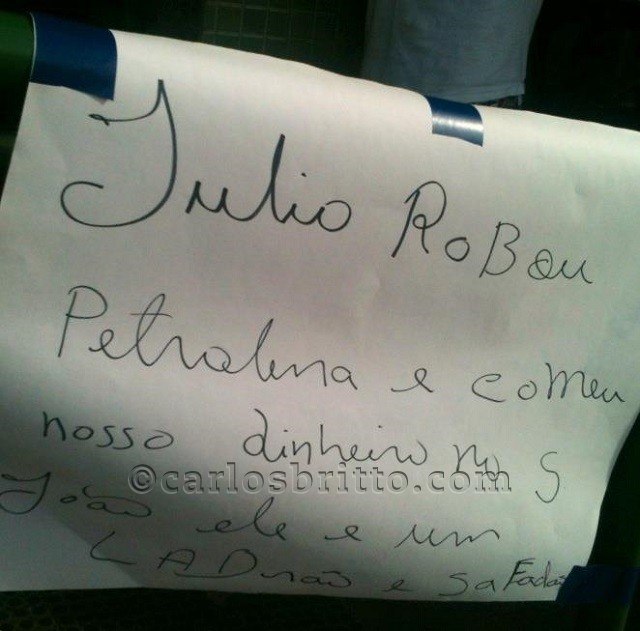 Julio RoBou
Petrolina e comeu
nosso dinheiro no S
©carlosbritto.com
João ele e um
LADrão e saFadão